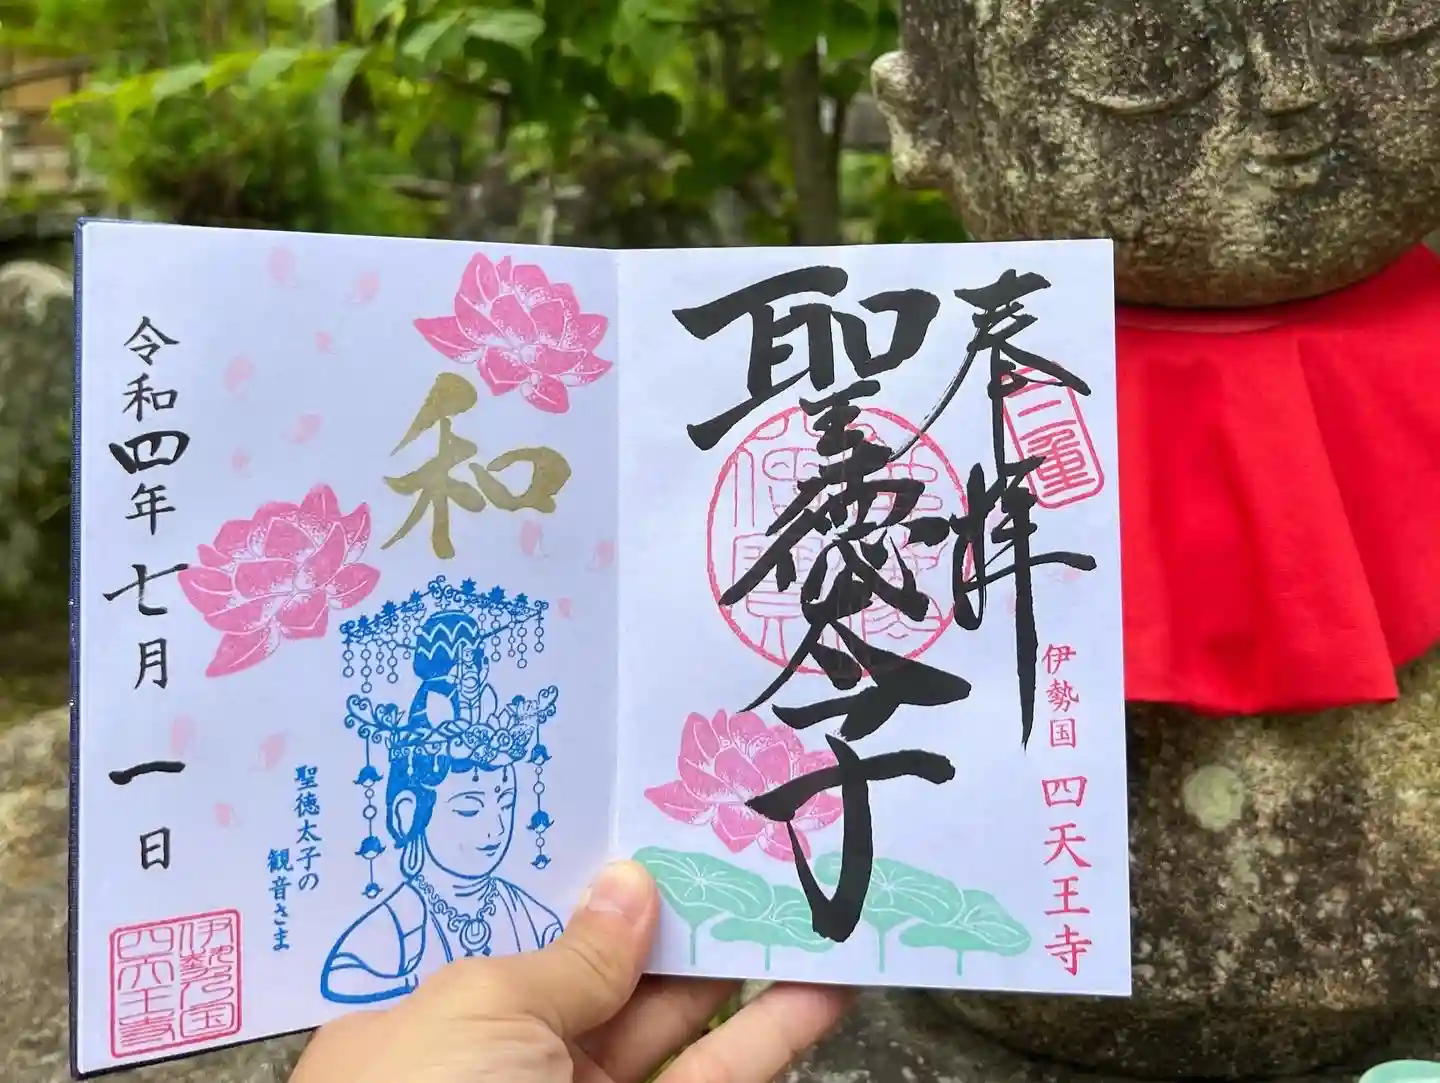 奉拝
伊勢国 四天王寺
聖徳太子
和
聖徳太子の
観音さま
令和四年七月一日
伊勢乃国
四天王寺